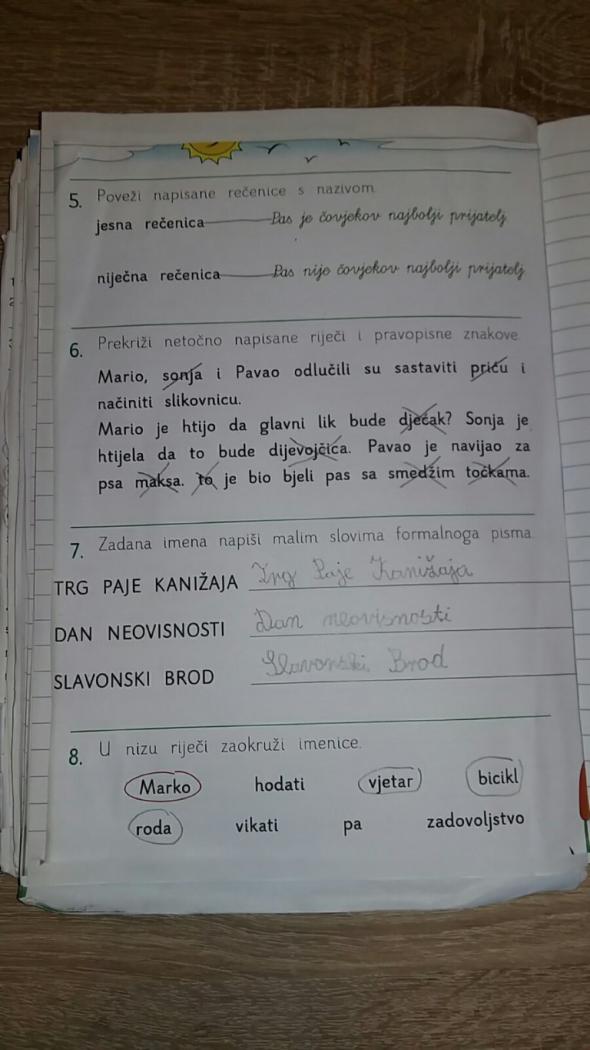 5. Poveži napisane rečenice s nazivom.
jesna rečenica Pas je čovjekov najbolji prijatelj.
niječna rečenica Pas nije čovjekov najbolji prijatelj.
6. Prekriži netočno napisane riječi i pravopisne znakove.
Mario, sonja i Pavao odlučili su sastaviti priću i
načiniti slikovnicu.
Mario je htijo da glavni lik bude dječak? Sonja je
htijela da to bude dijevojčica. Pavao je navijao za
psa maksa. to je bio bjeli pas sa smedžim točkama.
7. Zadana imena napiši malim slovima formalnoga pisma.
TRG PAJE KANIŽAJA Trg Paje Kanižaja
DAN NEOVISNOSTI Dan neovisnosti
SLAVONSKI BROD Slavonski Brod
8. U nizu riječi zaokruži imenice.
Marko hodati vjetar bicikl
roda vikati pa zadovoljstvo